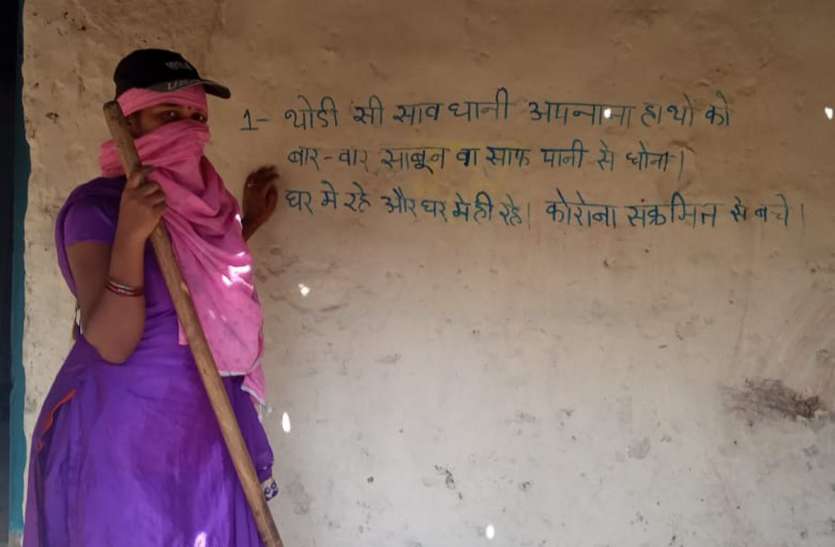 1- थोडी सी साव धानी अपनाना हाथो को
बार-वार साबून वा साफ पानी से धोना।
घर मे रहे और घर मे ही रहे। कोरोना संक्रमित से बचे।